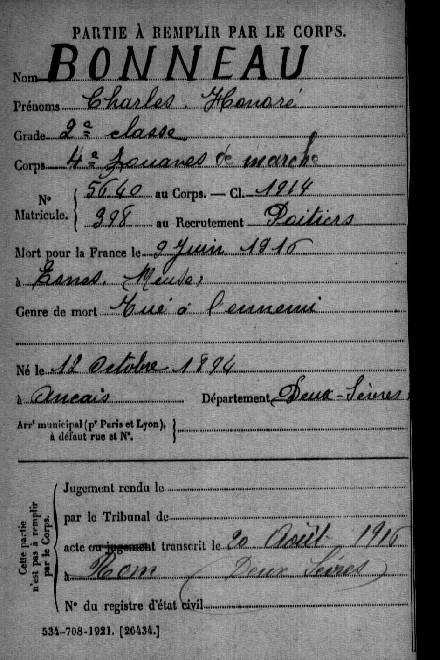 PARTIE À REMPLIR PAR LE CORPS.
Nom BONNEAU
Prénoms Charles. Honoré
Grade 2e classe
Corps 4e Zouaves de marche
N° Matricule. { 5640 au Corps. — Cl. 1914
398 au Recrutement Poitiers
Mort pour la France le 9 Juin 1916
à Esnes, Meuse,
Genre de mort Tué à l'ennemi
Né le 12 Octobre 1894
à Département Deux-Sèvres
Arr^t municipal (p^r Paris et Lyon), à défaut rue et N°. }
Cette partie n'est pas à remplir par le Corps. {
Jugement rendu le
par le Tribunal de
acte ou jugement transcrit le 20 Août 1916
à Rom (Deux Sèvres)
N° du registre d'état civil
534-708-1921. [26434.]